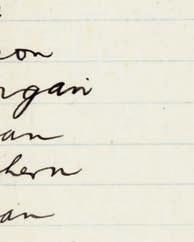 on
rgan
an
hern
an